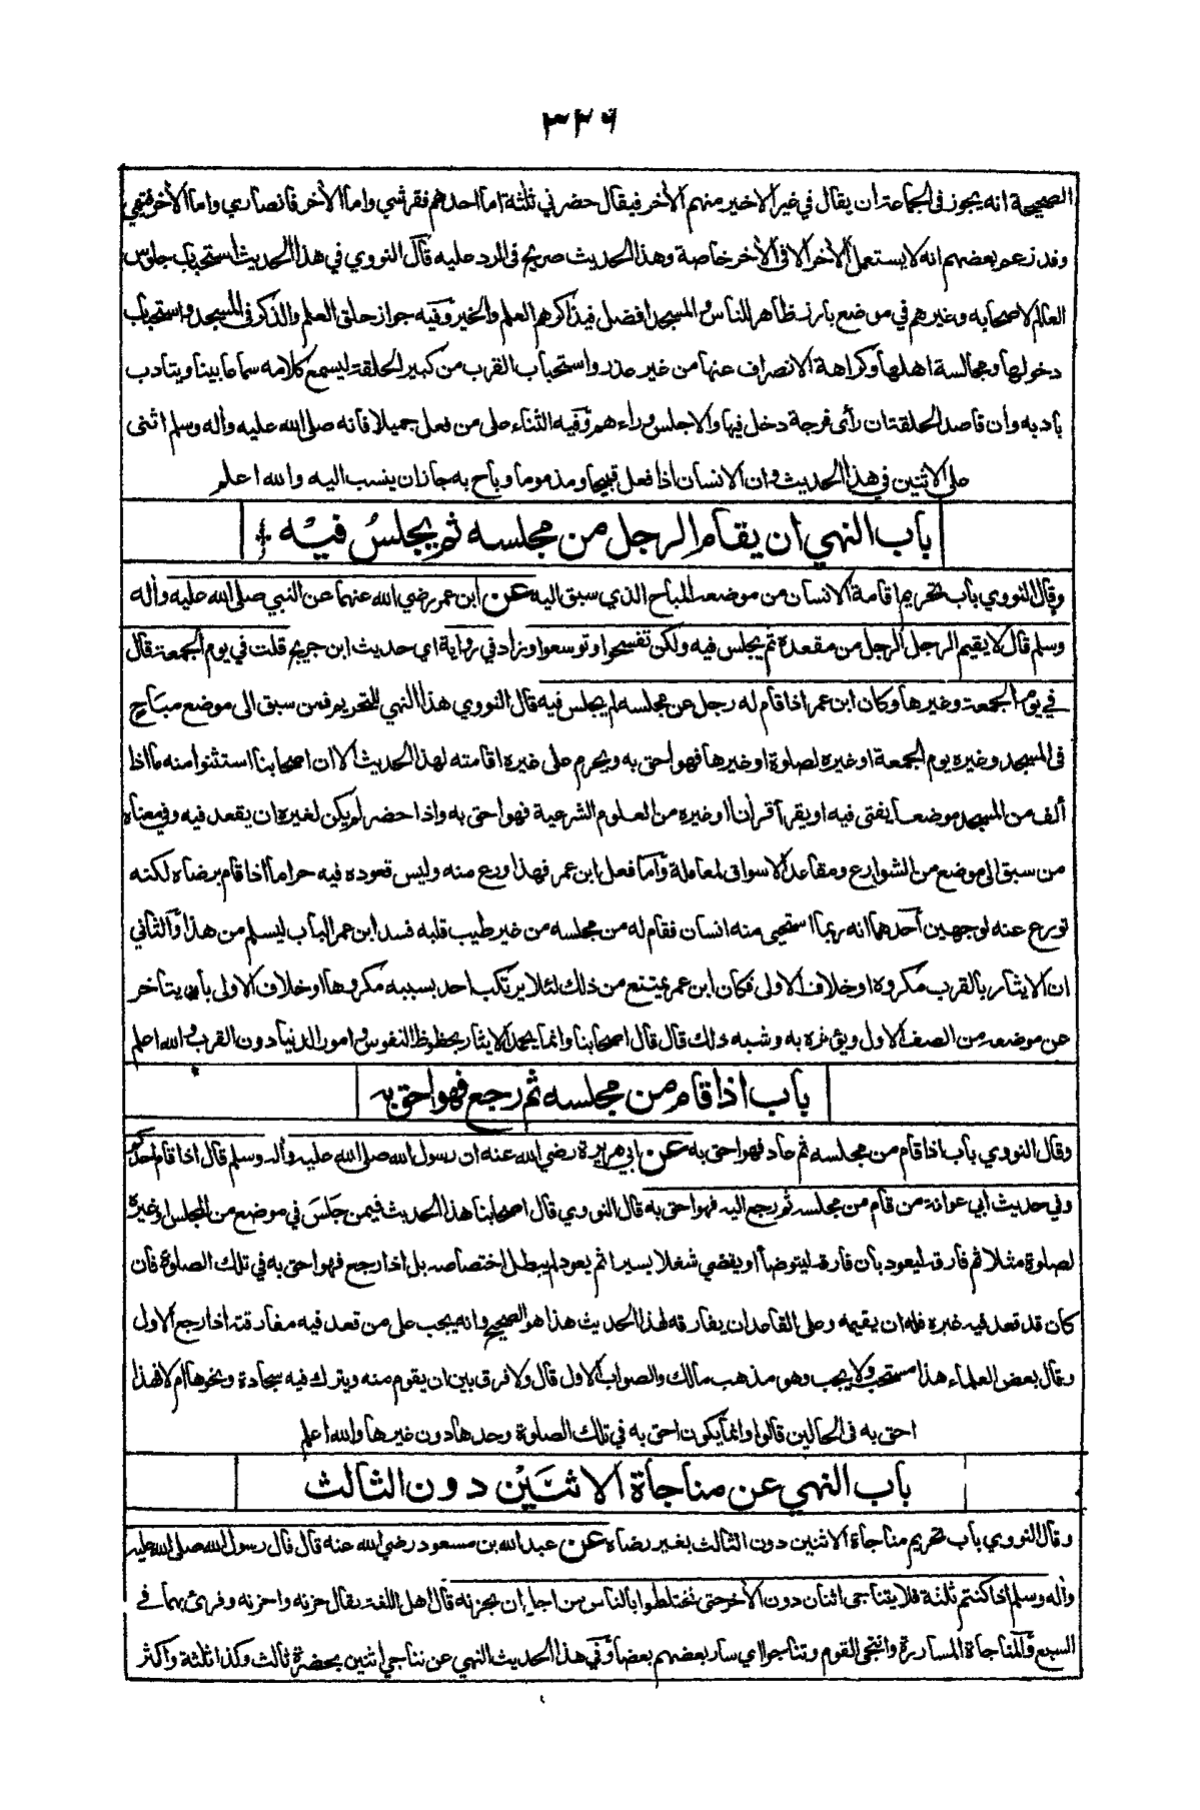 ٣٢٦
الصحيحة انه يجوز فى الجماعة ان يقال في غير الاخير منهم الأخر فيقال حضرني ثلثة اما احدهم فقرشي واما الأخر فانصاري واما الأخر فتيمي
وقد زعم بعضهم انه لا يستعمل الأخر الا فى الأخر خاصة وهذا الحديث صريح فى الرد عليه قال النووي في هذا الحديث استحباب جلوس
العالم لاصحابه وغيرهم في موضع بارز ظاهر للناس والمسجد افضل فيذاكرهم العلم والخير وفيه جواز حلق العلم والذكر فى المسجد واستحباب
دخولها ومجالسة اهلها وكراهة الانصراف عنها من غير عذر واستحباب القرب من كبير الحلقة ليسمع كلامه سماعا بينا ويتادب
بادبه وأن قاصد الحلقة ان رأى فرجة دخل فيها والا جلس وراءهم وفيه الثناء على من فعل جميلا فانه صلى الله عليه وأله وسلم اثنى
على الاثنين في هذا الحديث وان الانسان اذا فعل قبيحا ومذموما وباح به جاز ان ينسب اليه والله اعلم
باب النهي ان يقام الرجل من مجلسه ثم يجلسُ فيْه
وقال النووي باب تحريم اقامة الانسان من موضعه المباح الذي سبق اليه عن ابن عمر رضي الله عنهما عن النبي صلى الله عليه وأله
وسلم قال لا يقيم الرجل الرجل من مقعده ثم يجلس فيه ولكن تفسحوا وتوسعوا وزاد في رواية اي حديث ابن جريج قلت في يوم الجمعة قال
في يوم الجمعة وغيرها وكان ابن عمر اذا قام له رجل عن مجلسه لم يجلس فيه قال النووي هذا النهي للتحريم فمن سبق الى موضع مباح
فى المسجد وغيره يوم الجمعة او غيره لصلوة او غيرها فهو احق به ويحرم على غيره اقامته لهذا الحديث الا ان اصحابنا استثنوا منه ما اذا
ألف من المسجد موضعا يفتى فيه او يقرأ قرأنا او غيره من العلوم الشرعية فهو احق به واذا حضر لم يكن لغيره ان يقعد فيه وفي معناه
من سبق الى موضع من الشوارع ومقاعد الاسواق لمعاملة وأما فعل ابن عمر فهذا ورع منه وليس قعوده فيه حراما اذا قام برضاه لكنه
تورع عنه لوجهين أحدهما انه ربما استحيى منه انسان فقام له من مجلسه من غير طيب قلبه فسد ابن عمر الباب ليسلم من هذا والثاني
ان الايثار بالقرب مكروه او خلاف الاولى فكان ابن عمر يمتنع من ذلك لئلا يرتكب احد بسببه مكروها او خلاف الاولى بان يتأخر
عن موضعه من الصف الاول ويؤثره به وشبه ذلك قال قال اصحابنا وانما يحمد الايثار بحظوظ النفوس وامور الدنيا دون القرب والله اعلم
باب اذا قام من مجلسه ثم رجع فهو احق به
وقال النووي باب اذا قام من مجلسه ثم عاد فهو احق به عن ابي هريرة رضي الله عنه ان رسول الله صلى الله عليه وأله وسلم قال اذا قام احدكم
وفي حديث ابي عوانة من قام من مجلسه ثم رجع اليه فهو احق به قال النووي قال اصحابنا هذا الحديث فيمن جَلَسَ في موضع من المجلس او غيره
لصلوة مثلا ثم فارقه ليعود بأن فارقه ليتوضأ او يقضي شغلا يسيرا ثم يعود لم يبطل اختصاصه بل اذا رجع فهو احق به في تلك الصلوة فان
كان قد قعد فيه غيره فله ان يقيمه وعلى القاعد ان يفارقه لهذا الحديث هذا هو الصحيح وانه يجب على من قعد فيه مفارقته اذا رجع الاول
وقال بعض العلماء هذا مستحب ولا يجب وهو مذهب مالك والصواب الاول قال ولا فرق بين ان يقوم منه ويترك فيه سجادة ونحوها أم لا فهذا
احق به فى الحالين قالوا وانما يكون احق به في تلك الصلوة وحدها دون غيرها والله اعلم
باب النهي عن مناجاة الاثنَيْن دون الثالث
وقال النووي باب تحريم مناجاة الاثنين دون الثالث بغير رضاه عن عبد الله بن مسعود رضي الله عنه قال قال رسول الله صلى الله عليه
وأله وسلم اذا كنتم ثلثة فلا يتناجى اثنان دون الأخر حتى تختلطوا بالناس من اجل ان يحزنه قال اهل اللغة يقال حزنه واحزنه وقرئ بهما في
السبع والمناجاة المساررة وانتجى القوم وتناجوا اي سار بعضهم بعضا وفي هذا الحديث النهي عن تناجي اثنين بحضرة ثالث وكذا ثلثة وأكثر